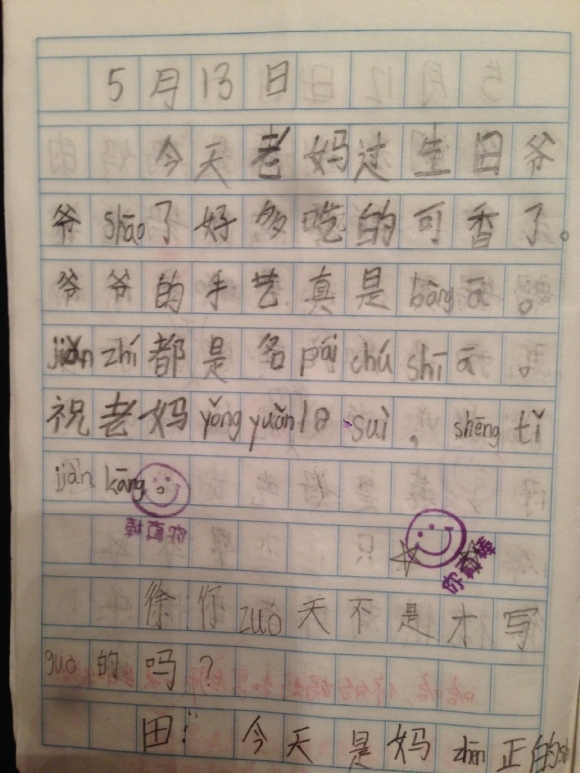 5月13日
今天老妈过生日爷
爷shāo了好多吃的可香了。
爷爷的手艺真是bàng ā。
jiǎn zhí都是名pái chú shī ā。
祝老妈yǒng yuǎn 18 suì,shēng tǐ
jiàn kāng。
你真棒
你真棒
徐你zuó天不是才写
guò的吗?
田:今天是妈zhēn正的